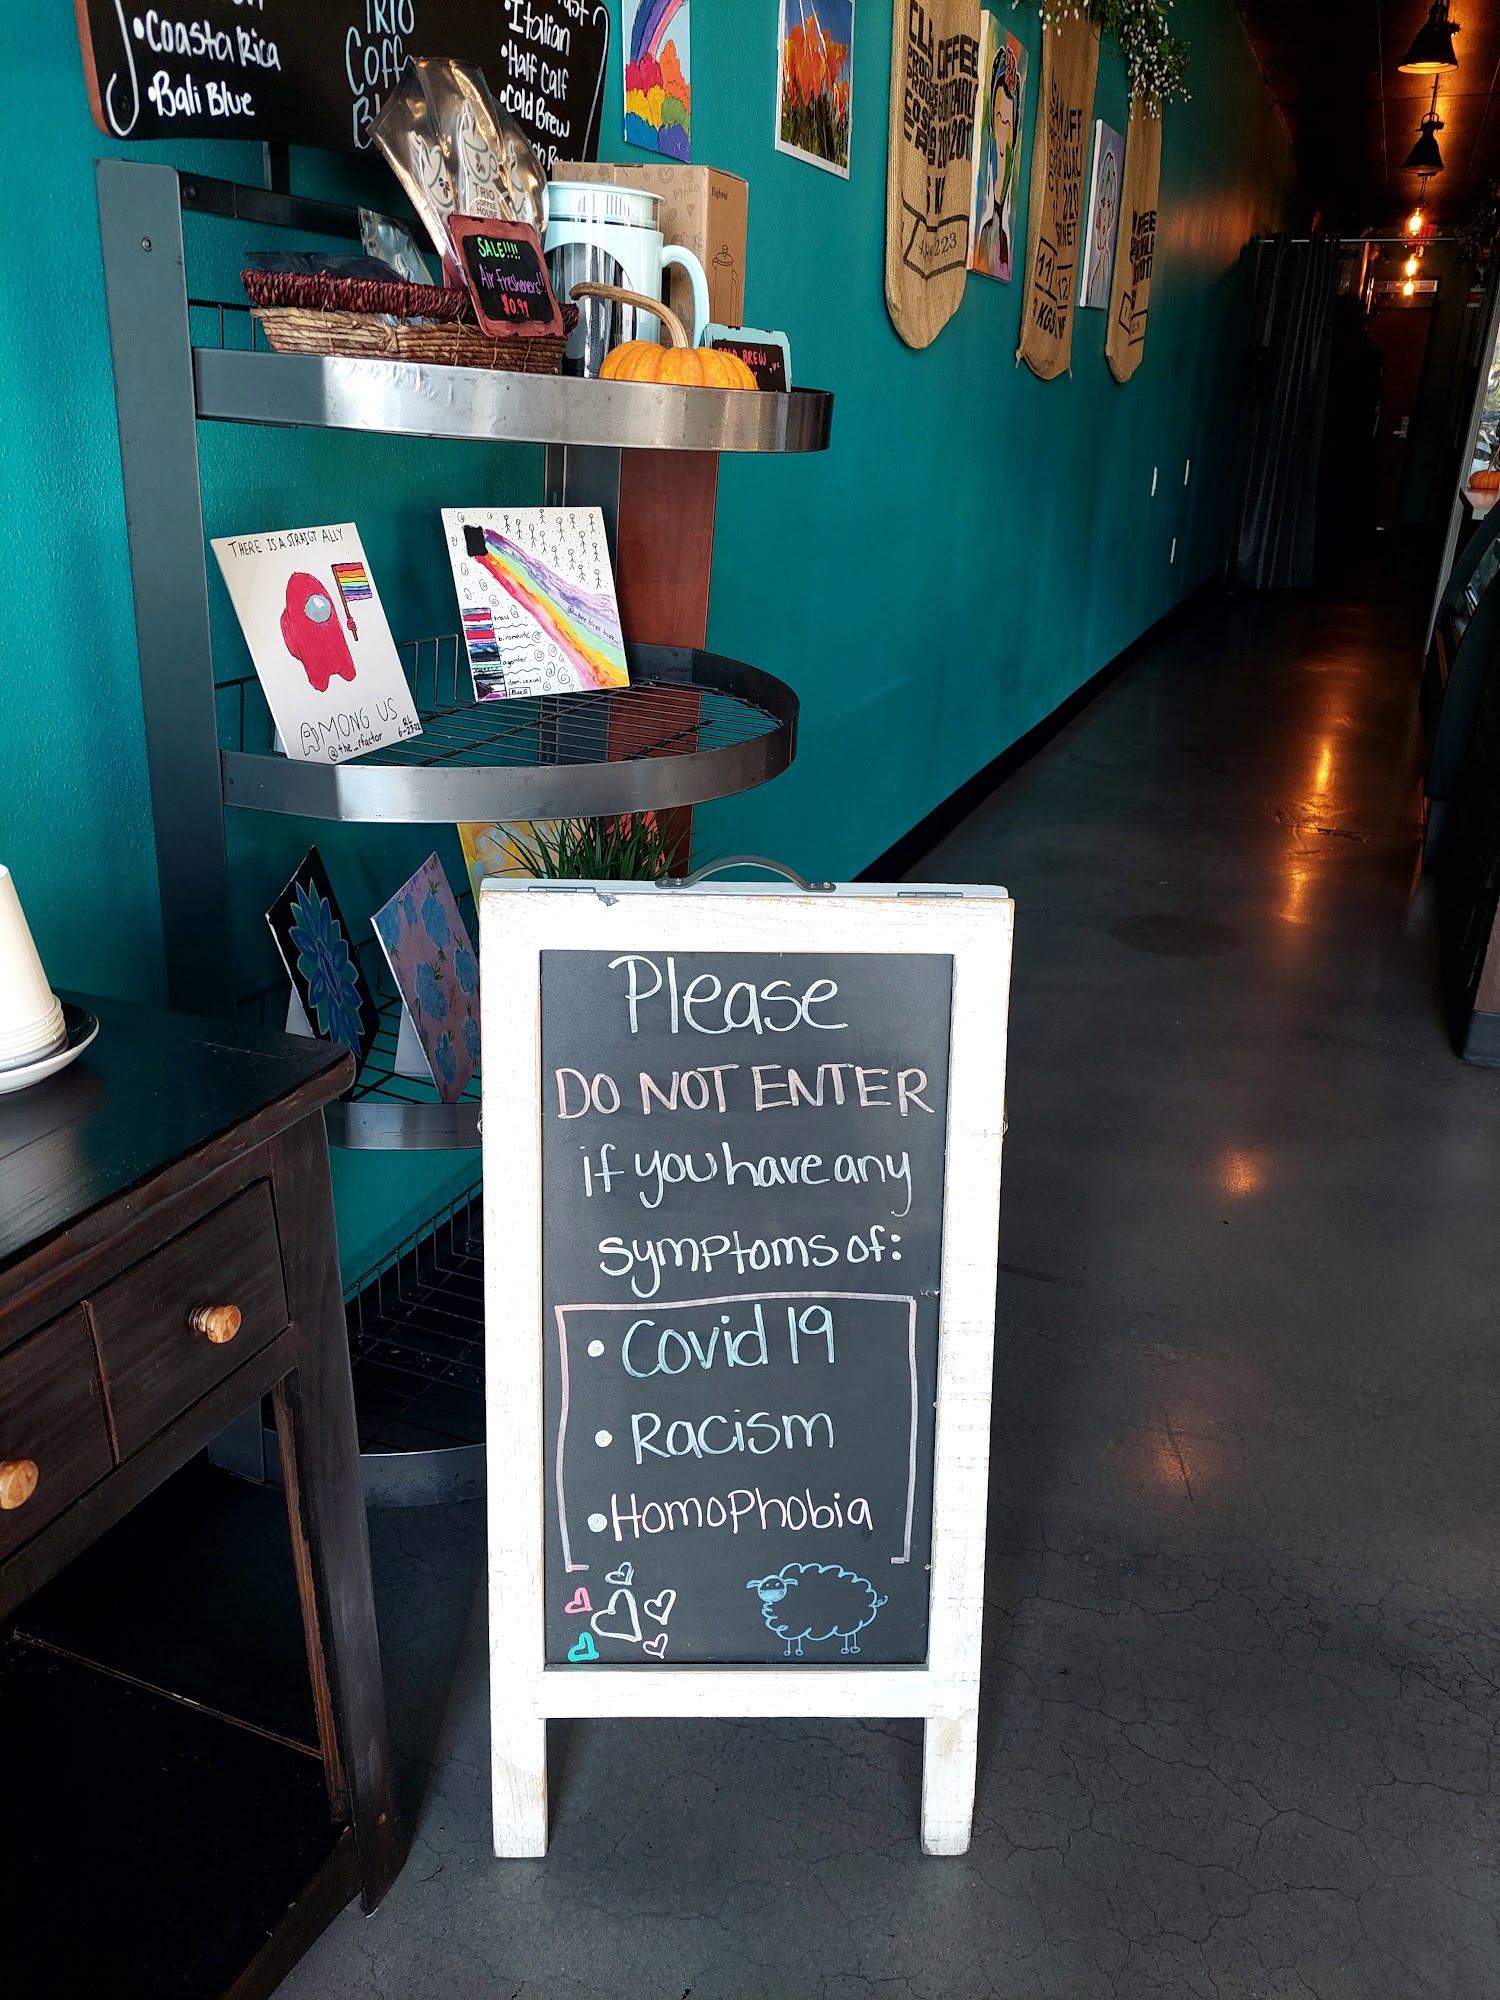 • Coasta Rica
• Bali Blue
TRIO
Coff
• Italian
• Half Calf
• Cold Brew
TRIO
COFFEE
HOUSE
SALE!!!!
Air Fresheners!!
$0.99
BREW
THERE IS A STRAIGT ALLY
AMONG US
@the_rfactor
RL
6-23-22
trans
biromantic
agender
demisexual
Please
DO NOT ENTER
if you have any
symptoms of:
• Covid 19
• Racism
• Homophobia